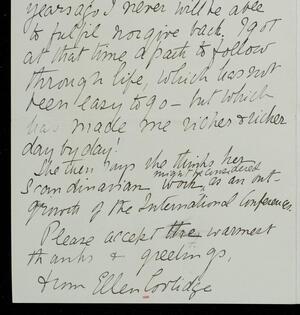 years ago I never will be able
to fulfil nor give back. I got
at that time a path to follow
through life, which has not
been easy to go - but which
has made me richer & richer
day by day!
She then says she thinks her
Scandinavian work, might be considered as an out-
growth of the International Conference.
Please accept the warmest
thanks & greetings,
from Ellen